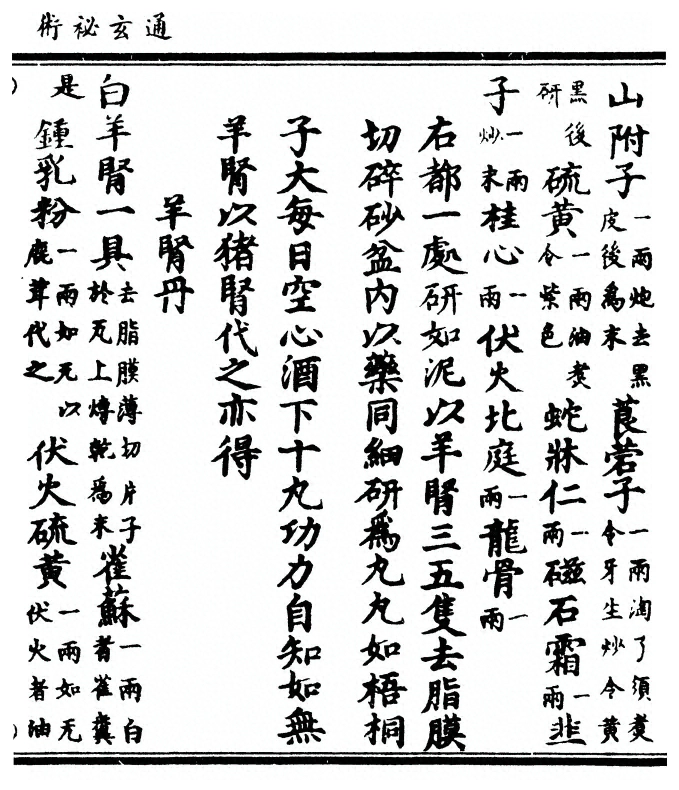 通玄祕術
山附子一兩炮去黑皮後爲末莨菪子一兩淘了須煑令牙生炒令黄
黑後研硫黄一兩油煑令紫色蛇牀仁一兩磁石霜一兩韭
子一兩炒末桂心一兩伏火北庭一兩龍骨一兩
右都一處研如泥以羊腎三五隻去脂膜
切碎砂盆内以藥同細研爲丸丸如梧桐
子大每日空心酒下十丸功力自知如無
羊腎以猪腎代之亦得
羊腎丹
白羊腎一具去脂膜薄切片子於瓦上煿乾爲末雀蘇一兩白者雀糞
是鍾乳粉一兩如无以鹿茸代之伏火硫黄一兩如无伏火者油